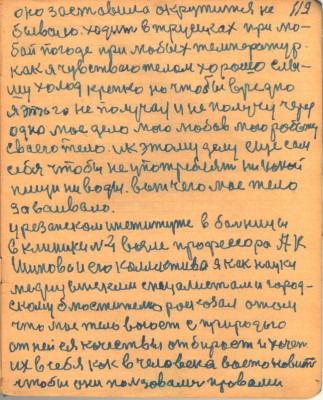 119
оно заставила окрутится не
бывало. ходить в трусиках при лю-
бой погоде при любых температур.
как я чувствую телом хорошо слы-
шу холод крепко но чтобы вредно
я этого не получал и не получу через
одно мое дело мою любов мою работу
своего тело. и к этому делу еще сам
себя чтобы не употреблять никакой
пищи ни воды. вот чего мое тело
завоивало.
у резанском институте в болницы
в клиники №4 возле профессора А К
и его коллектива я как науки
медицинским специалистам и город-
скому рассказал о том
что мое тело воюет с природою
от ней ся качества отбирает и хочет
их в себя как в человека востоновить
чтобы они ползовались правами